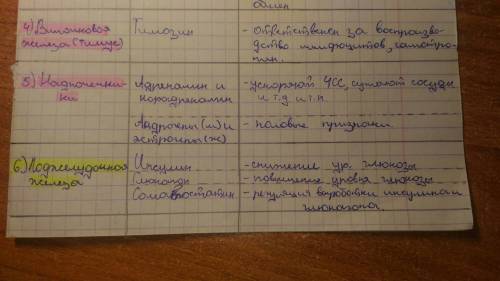 обмен
4) Вилочковая Тимозин - ответственен за воспроизво-
железа (тимус) дство лимфоцитов,
5) Надпочечни- Адреналин и - ускоряют ЧСС, сужают сосуды
ки норадреналин и т.д. и т.п.
Андрогены (м) и - половые признаки
эстрогены (ж)
6) Поджелудочная Инсулин - снижение ур. глюкозы
железа Глюкагон - повышение уровня глюкозы
Соматостатин - регуляция выработки инсулина и
глюкагона.